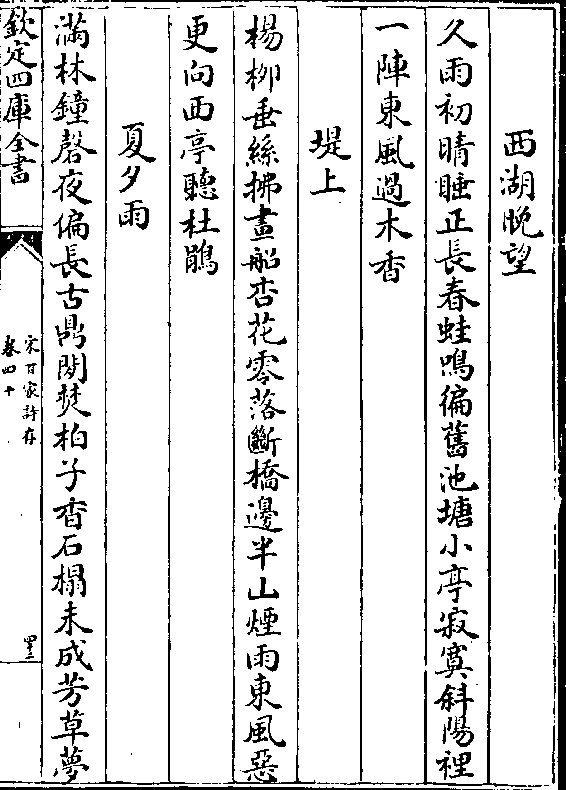 西湖晩望
久雨初晴睡正長春蛙鳴徧舊池塘小亭寂寞斜陽裡
一陣東風過木香
堤上
楊栁垂絲拂畫船杏花零落斷橋邊半山煙雨東風惡
更向西亭聽杜鵑
夏夕雨
滿林鐘磬夜偏長古鼎閒焚柏子香石榻未成芳草夢
欽定四庫全書
宋百家詩存
卷四十